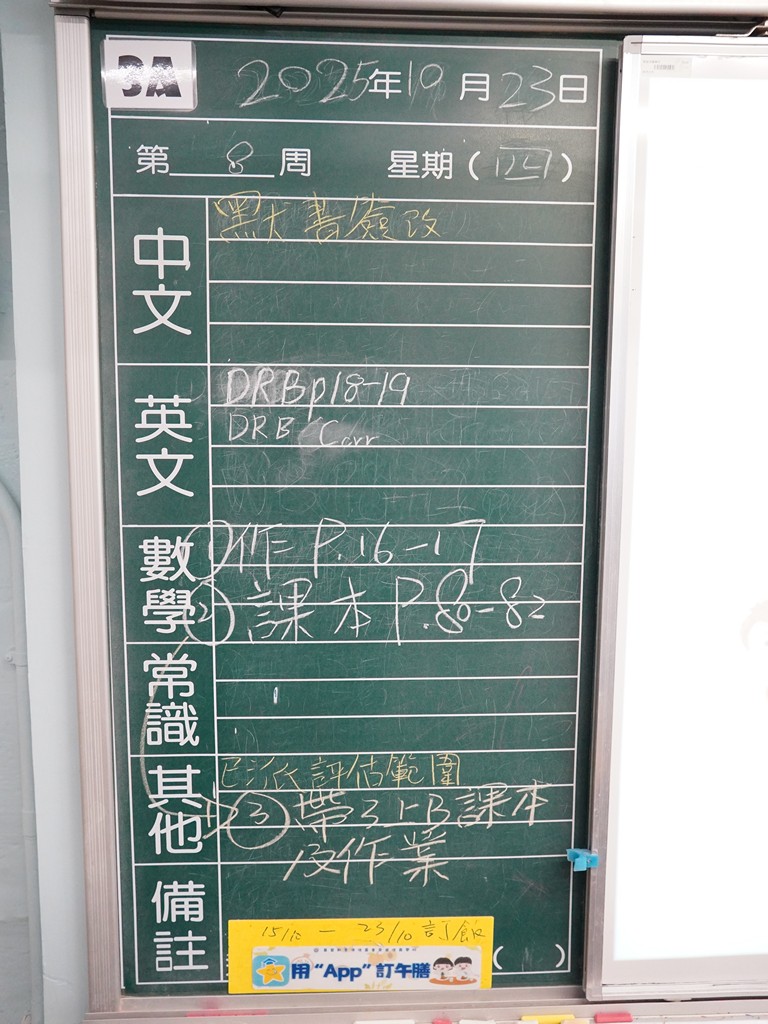 3A
2025年10月23日
第 8 周 星期(四)
中文
默大書簽改
英文
DRB p18-19
DRB Corr
數學
①作 P.16-17
② 課本 P.80-82
常識
其他
已派評估範圍
③ 帶3上B課本
及作業
備註
15/10 — 23/10 訂飯
用“App”訂午膳
( )